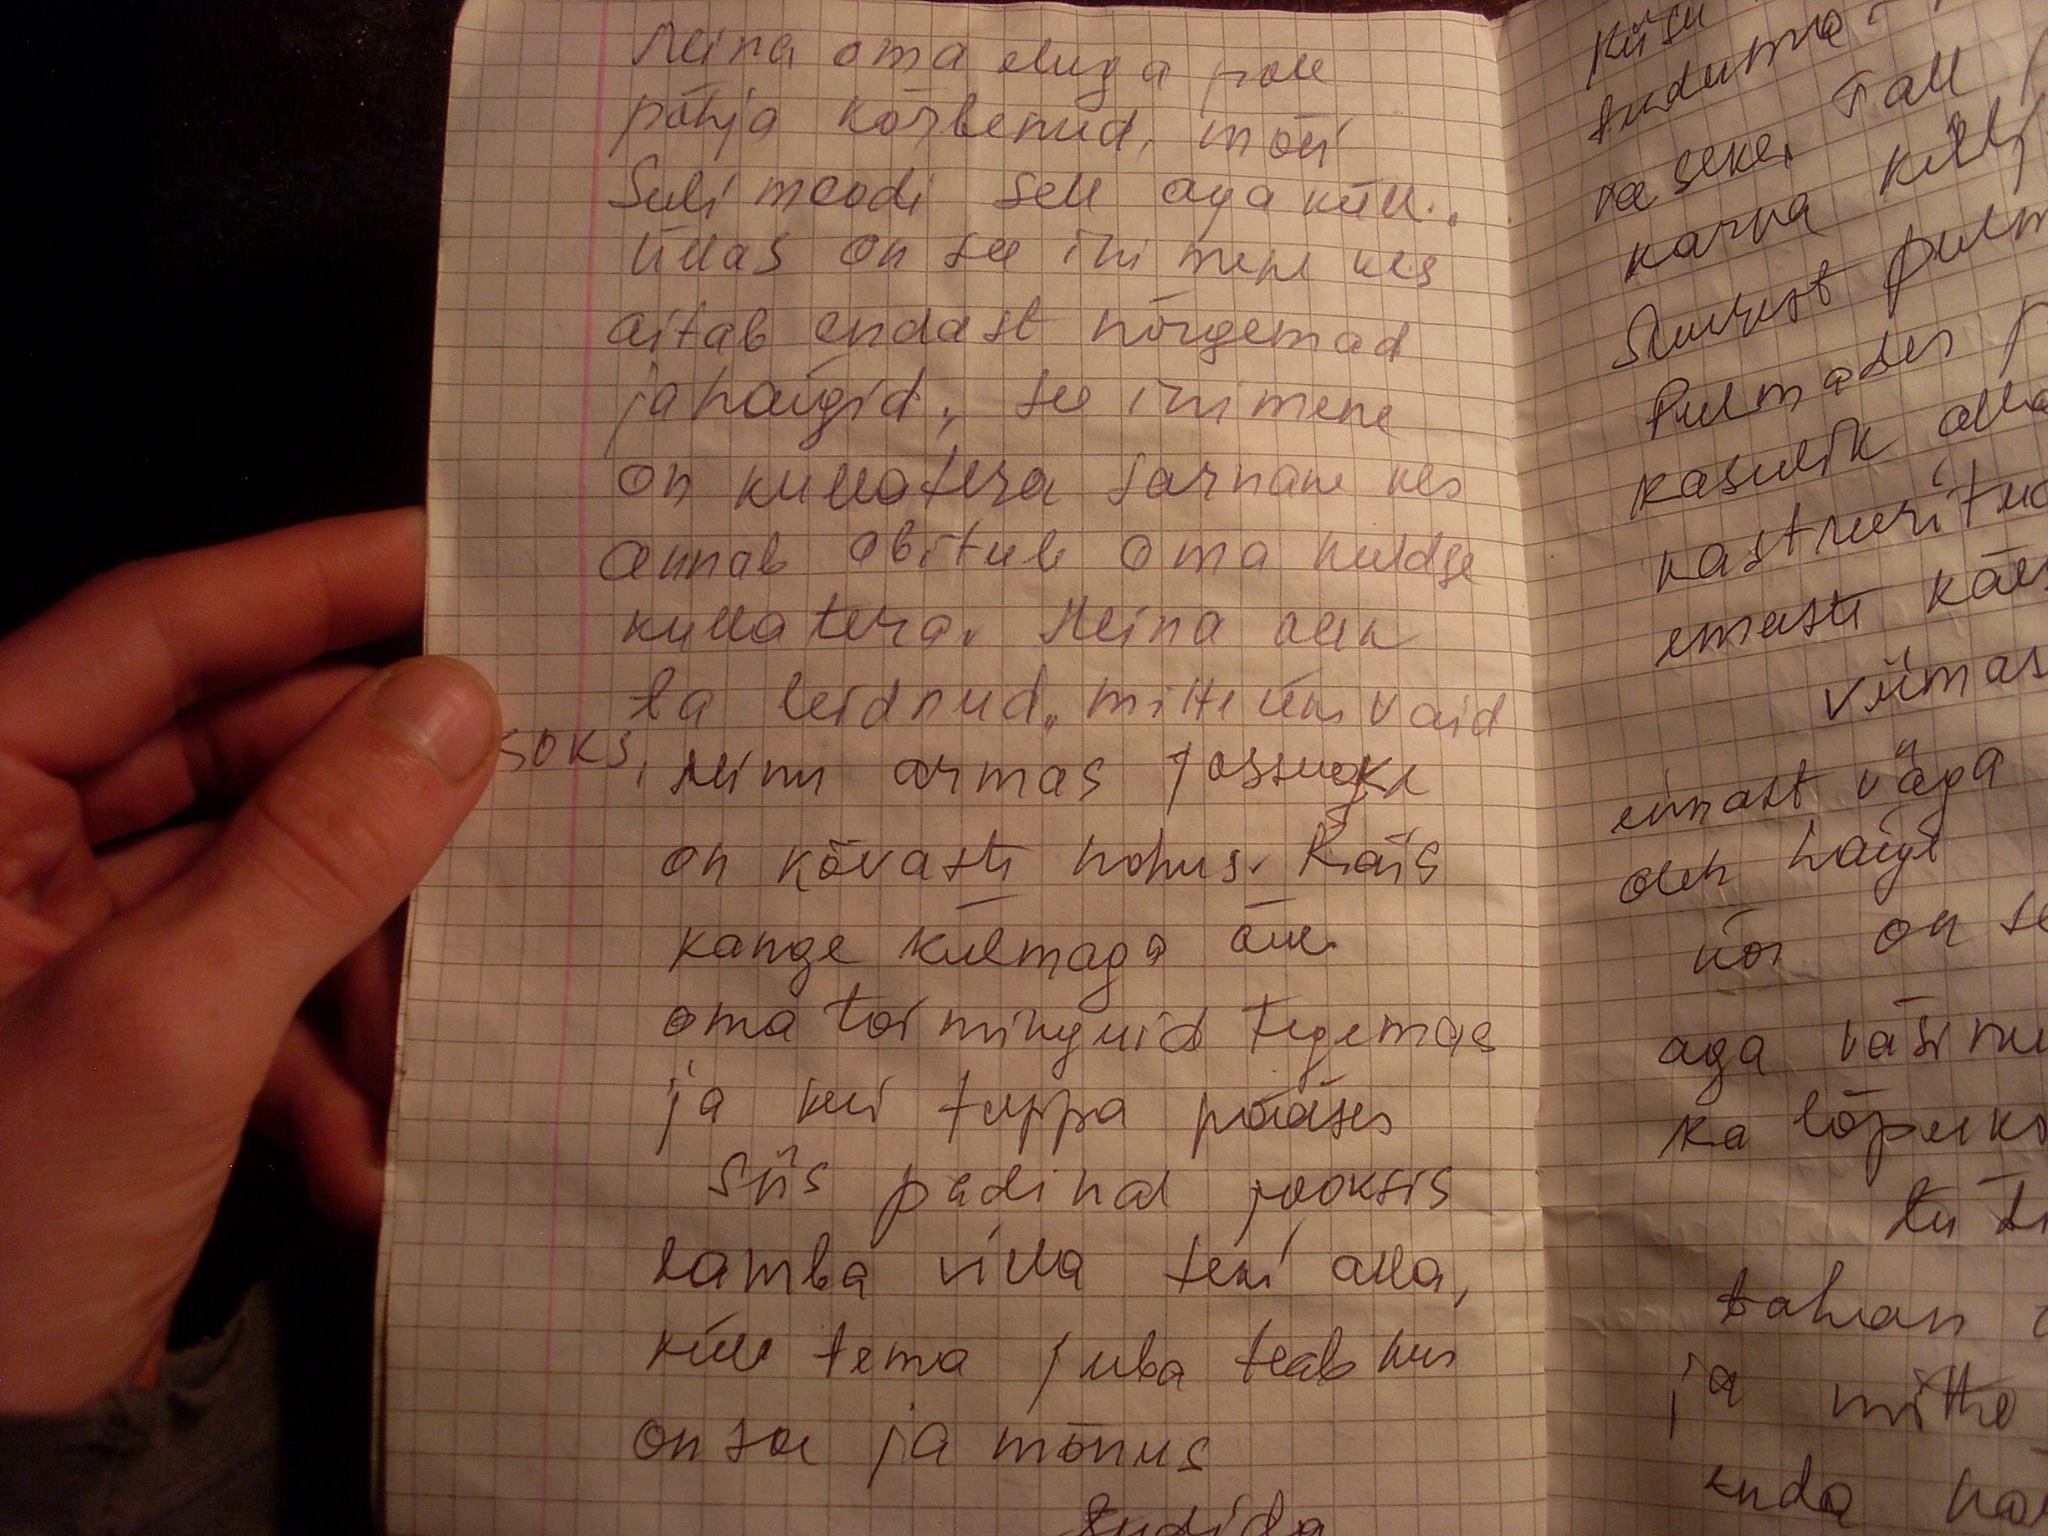 Meina oma eluga pole
põhja kõrbenud, mõri
Suli moodi sell aga küll.
Üllas on see inimene kes
aitab endast nõrgemad
ja haigid, see inimene
on kullatera sarnane kes
annab abitule oma kuldse
kullatera. Meina olen
ta leidnud, mitte üks vaid
soks, Meinu armas Jossuke
on kõvasti nohus. Käis
kange külmaga õue
oma toiminguid tegemas
ja kui tuppa pääses
Siis padinal jooksis
lamba villa teki alla,
küll tema juba teab kus
on soe ja mõnus
tudida
Küsu
tuduma
raseke, Tall
karva kilb
Suurest pulm
Pulmades p
kasulik olla
kastreeritud
emaste käes
viimas
ennast väga
olen haige
üos on se
aga väsinu
ka lõpuks
tahan
ja mitte
enda hä